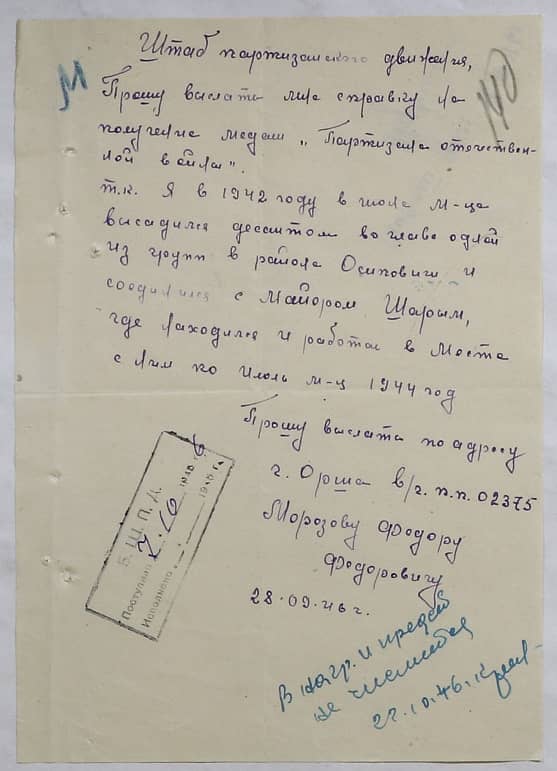 Штаб партизанского движения,
М
140
Прошу выслать мне справку на
получение медали „Партизана отечествен-
ной войны".
т.к. Я в 1942 году в июле м-це
высадился десантом во главе одной
из групп в районе Осиповичи и
соединился с Майором Шарым,
где находился и работал в Места
с ним по июль м-ц 1944 год
Прошу выслать по адресу
г. Орша в/ч. п.п. 02375
Морозову Федору
Федоровичу
28.09.46 г.
Б. Ш. П. Д.
Поступило 2.10 1946 г.
Исполнено 194 г.
В нагр. и предст
не числится
22.10.46.